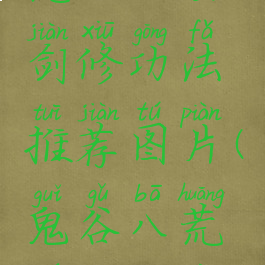 jiàn xiū gōng fǎ
剑修功法
tuī jiàn tú piàn
推荐图片(
guǐ gǔ bā huāng
鬼谷八荒